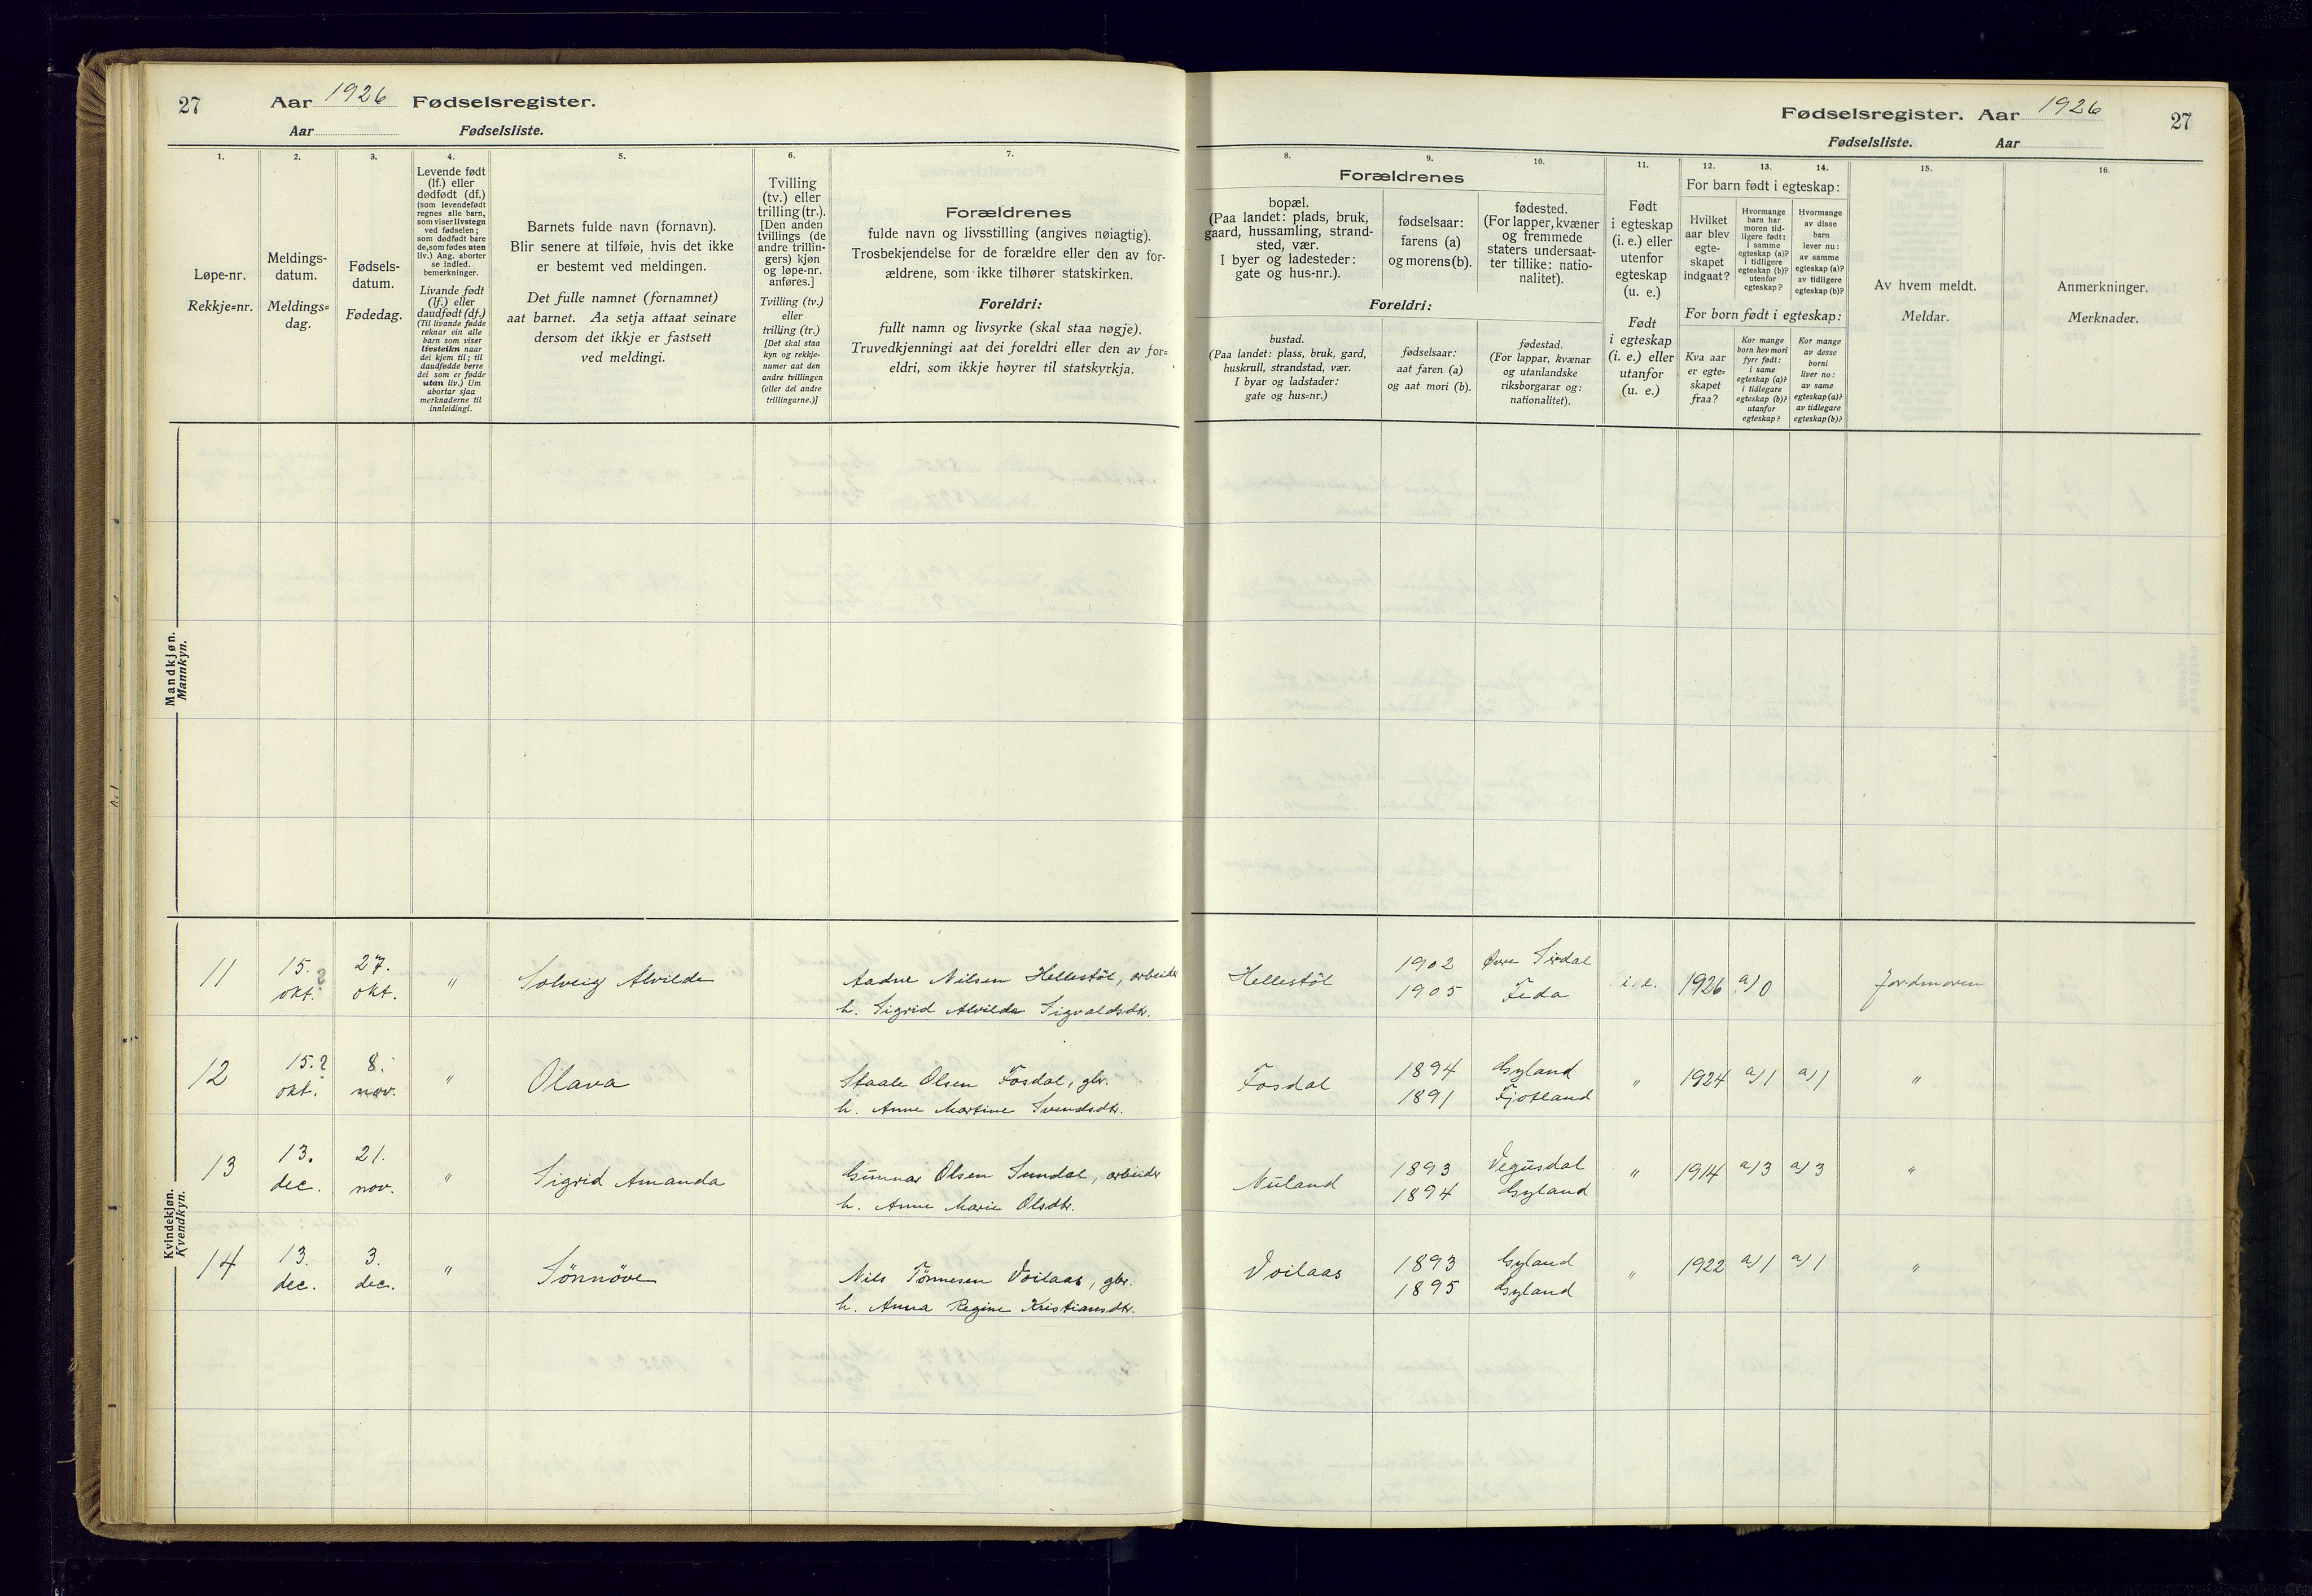 27 Aar 1926 Fødselsregister.
Aar Fødselsliste.
Fødselsregister. Aar 1926 27
Fødselsliste. Aar
1. 2. 3. 4. 5. 6. 7.
Løpe-nr.
Rekkje=nr.
Meldings-
datum.
Meldings=
dag.
Fødsels-
datum.
Fødedag.
Levende født
(lf.) eller
dødfødt (df.)
(som levendefødt
regnes alle barn,
som viser livstegn
ved fødselen;
som dødfødt bare
de, som fødes uten
liv.) Ang. aborter
se indled.
bemerkninger.
Livande født
(lf.) eller
daudfødt (df.)
(Til livande fødde
reknar ein alle
barn som viser
livsteikn naar
dei kjem til; til
daudfødde berre
dei som er fødde
utan liv.) Um
abortar sjaa
merknaderne til
innleidingi.
Barnets fulde navn (fornavn).
Blir senere at tilføie, hvis det ikke
er bestemt ved meldingen.
Det fulle namnet (fornamnet)
aat barnet. Aa setja attaat seinare
dersom det ikkje er fastsett
ved meldingi.
Tvilling
(tv.) eller
trilling (tr.).
[Den anden
tvillings (de
andre trillin-
gers) kjøn
og løpe-nr.
anføres.]
Tvilling (tv.)
eller
trilling (tr.)
[Det skal staa
kyn og rekkje-
numer aat den
andre tvillingen
(eller dei andre
trillingarne.)]
Forældrenes
fulde navn og livsstilling (angives nøiagtig).
Trosbekjendelse for de forældre eller den av for-
ældrene, som ikke tilhører statskirken.
Foreldri:
fullt namn og livsyrke (skal staa nøgje).
Truvedkjenningi aat dei foreldri eller den av for=
eldri, som ikkje høyrer til statskyrkja.
8. 9. 10. 11. 12. 13. 14. 15. 16.
Forældrenes
bopæl.
(Paa landet: plads, bruk,
gaard, hussamling, strand-
sted, vær.
I byer og ladesteder:
gate og hus-nr.).
fødselsaar:
farens (a)
og morens (b).
fødested.
(For lapper, kvæner
og fremmede
staters undersaat-
ter tillike: natio-
nalitet).
Foreldri:
bustad.
(Paa landet: plass, bruk, gard,
huskrull, strandstad, vær.
I byar og ladstader:
gate og hus=nr.)
fødselsaar:
aat faren (a)
og aat mori (b).
fødestad.
(For lappar, kvænar
og utanlandske
riksborgarar og:
nationalitet).
Født
i egteskap
(i. e.) eller
utenfor
egteskap
(u. e.)
Født
i egteskap
(i. e.) eller
utanfor
(u. e.)
For barn født i egteskap:
Hvilket
aar blev
egte-
skapet
indgaat?
Hvormange
barn har
moren tid-
ligere født:
i samme
egteskap (a)?
i tidligere
egteskap (b)?
utenfor
egteskap?
Hvormange
av disse
barn
lever nu:
av samme
egteskap (a)?
av tidligere
egteskap (b)?
For born født i egteskap:
Kva aar
er egte=
skapet
fraa?
Kor mange
born hev mori
fyrr født:
i same
egteskap (a)?
i tidlegare
egteskap (b)?
utanfor
egteskap?
Kor mange
av desse
borni
liver no:
av same
egteskap (a)?
av tidlegare
egteskap (b)?
Av hvem meldt.
Meldar.
Anmerkninger.
Merknader.
Mandkjøn.
Mannkyn.
Kvindekjøn.
Kvendkyn.
11 15. okt. ? 27. okt. " Solveig Alvilde Aadne Nilsen Hellestöl, arbeider Hellestöl 1902 Övre Sirdal i. e. 1926 a) 0 Jordmoren
h. Sigrid Alvilde Sigvaldsdtr. 1905 Feda
12 15.? okt. 8. nov. " Olava Staale Olsen Fosdal, gbr. Fosdal 1894 Gyland " 1924 a) 1 a) 1 "
h. Anne Martine Svendsdtr. 1891 Fjotland
13 13. dec. 21. nov. " Sigrid Amanda Gunnar Olsen Sundal, arbeider Nuland 1893 Vegusdal " 1914 a) 3 a) 3 "
h. Anne Marie Olsdtr. 1894 Gyland
14 13. dec. 3. dec. " Sönnöve Nils Tönnesen Voilaas, gbr. Voilaas 1893 Gyland " 1922 a) 1 a) 1 "
h. Anna Regine Kristiansdtr. 1895 Gyland